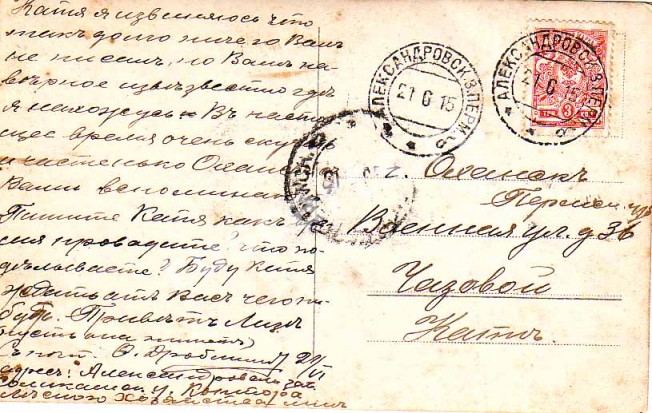 Катя я извиняюсь что
такъ долго ничего Вамъ
не писалъ, но Вамъ на-
вѣрное извѣстно гдѣ
я нахожусь. Въ насто
щее время очень скучно
и частенько
Вами вспоминаю
Пишите Катя какъ вре
мя проводите что по-
дѣлываете? Буду Катя
ждать отъ Васъ чего ни-
будь. Привѣтъ Лизѣ
пусть она пишетъ
Съ почт. 21/VI
адресъ: Александровскъ зав.
Соликамск. у. Контора
Лѣсного Хозяйства
АЛЕКСАНДРОВСК.З.ПЕРМ.Г.
21 6 15
АЛЕКСАНДРОВСК.З.ПЕР
21 6 15
3
г. Оханскъ
Пермск. губ
Военная ул. д 36
Чазовой
Катѣ.